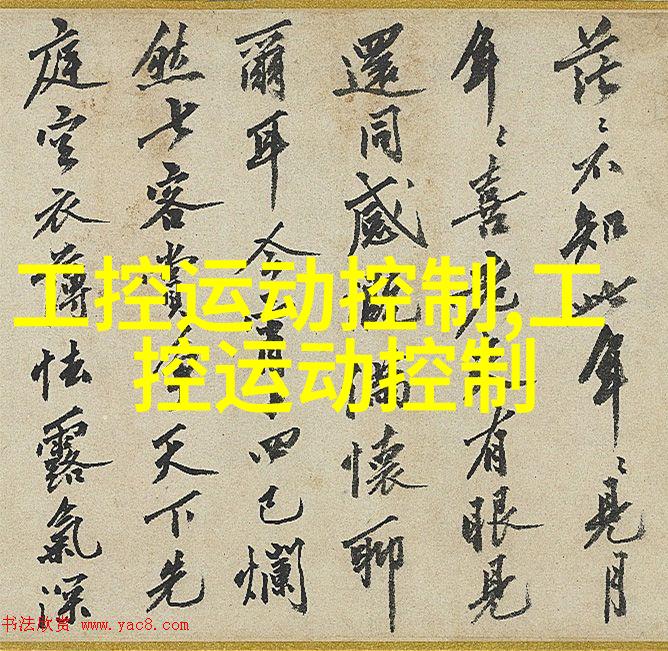 茫〻不知此年〻見月
年〻喜有眼見
還同感慨懷聊
爾耳今宵十四已爛
然七客賞天下先
庭空衣薄怯露氣深
工控运动控制,工
控运动控制
书法欣赏 www.yac8.com